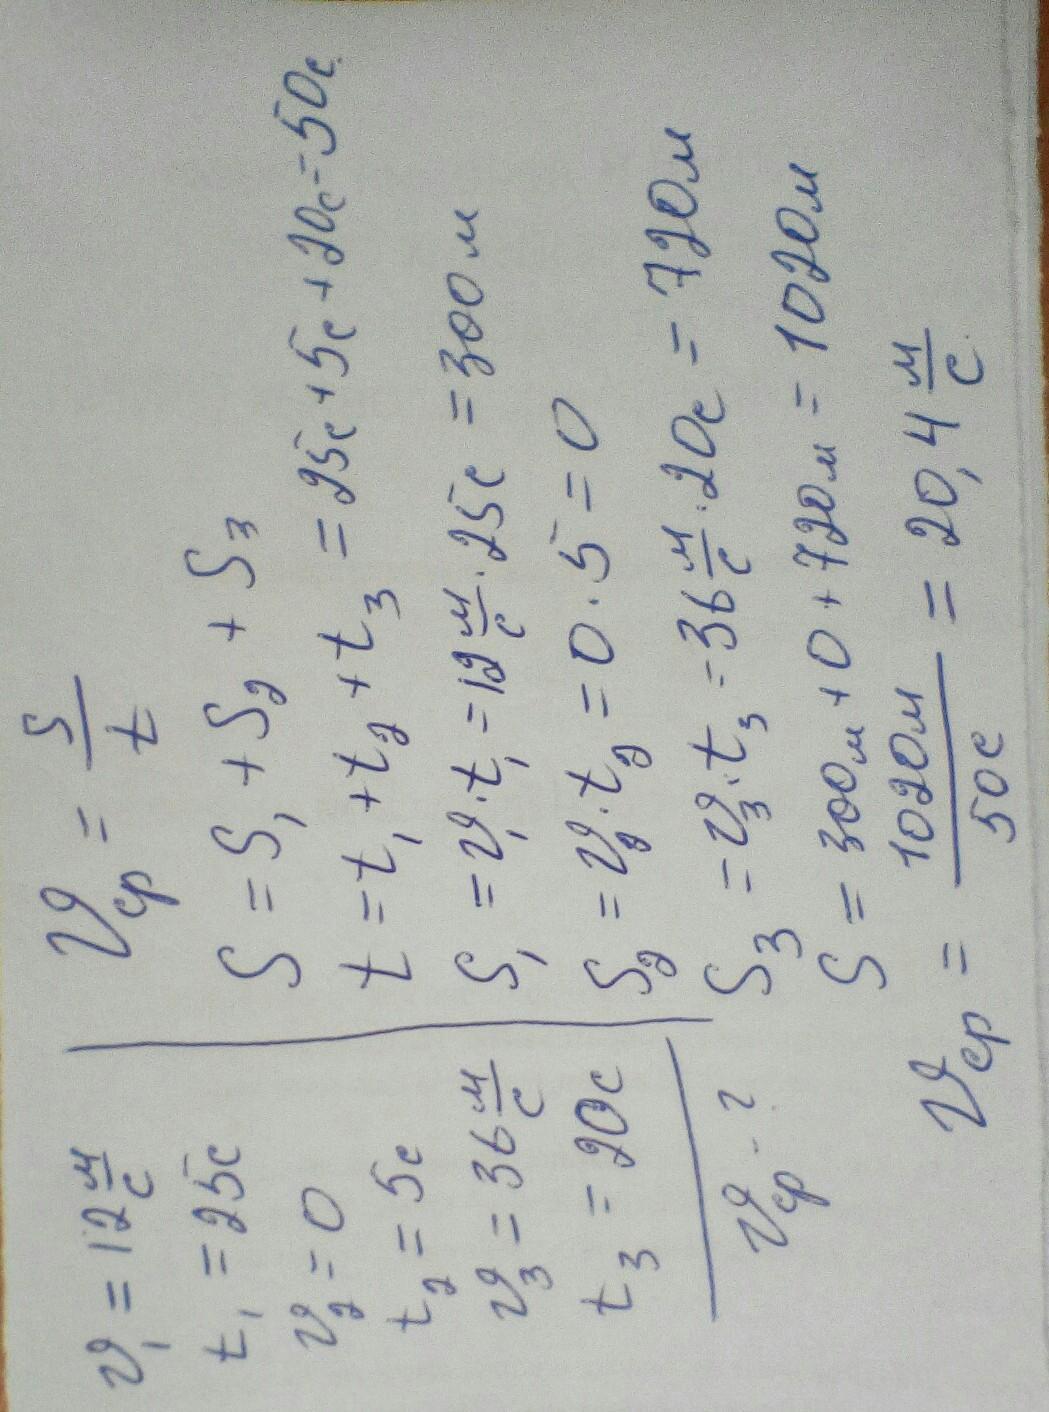 v₁ = 12 м/с
t₁ = 25с
v₂ = 0
t₂ = 5с
v₃ = 36 м/с
t₃ = 20с
vср - ?
vср = S/t
S = S₁ + S₂ + S₃
t = t₁ + t₂ + t₃ = 25с + 5с + 20с = 50с.
S₁ = v₁ · t₁ = 12 м/с · 25с = 300м
S₂ = v₂ · t₂ = 0 · 5 = 0
S₃ = v₃ · t₃ = 36 м/с · 20с = 720м
S = 300м + 0 + 720м = 1020м
vср = 1020м/50с = 20,4 м/с.